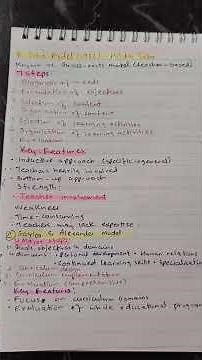 Model (1962) -
Known as Grass-roots model (teacher-based)
7 steps
Diagnosis of needs
Formulation of objectives
Selection of content
Organization of content
Selection of learning activities
Organization of learning activities
Evaluation
Key Features
• Inductive approach (specific → general)
• Teachers heavily involved
• Bottom-up approach
Strength:
• Teacher involvement
Weakness
• Time-consuming
• Teachers may lack expertise
Saylor & Alexander Model
Major steps
Goals, objectives & domains
• domains - Personal development • Human relations
Continued learning skills • Specialization
Curriculum design
Curriculum implementation
Evaluation (comprehensive)
Key Features:
• Focuses on curriculum domains
• Evaluation of whole educational program